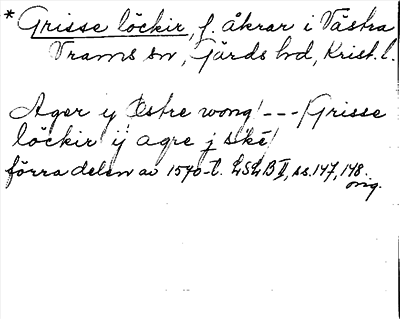 * Grisse löckir, f. åkrar i Västra
Vrams sn, Gärds hd, Krist. l.
Ager y Østre wong/ --- /Grisse
löckir ij agre j ske/
förra delen av 1570-t. LSLB II, ss. 147, 148.
orig.